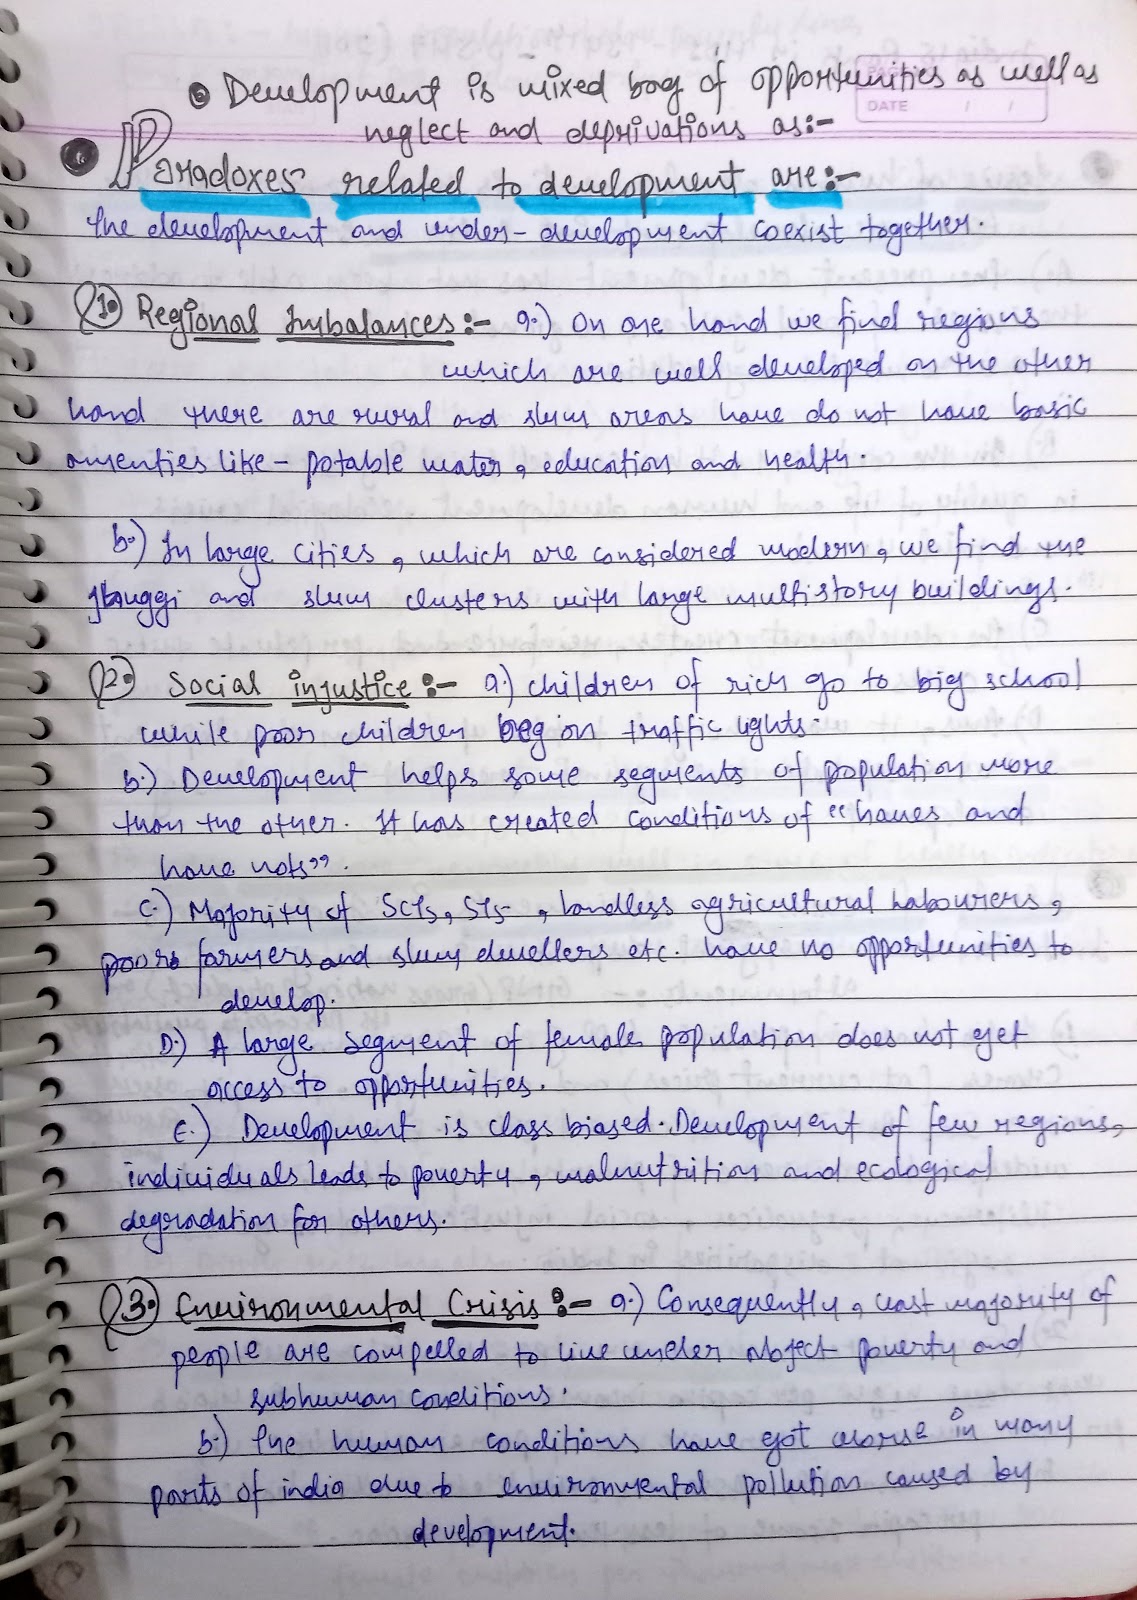 Development is mixed bag of opportunities as well as
DATE / /
neglect and deprivations as:-
Paradoxes related to development are:-
the development and under-development coexist together.
1. Regional Imbalances:- a.) On one hand we find regions
which are well developed on the other
hand there are rural and slum areas have do not have basic
amenties like - potable water, education and health.
b.) In large cities, which are considered modern, we find the
jhuggi and slum clusters with large multistory buildings.
2. Social injustice:- a.) children of rich go to big school
while poor children beg on traffic lights.
b.) Development helps some segments of population more
than the other. It has created conditions of "haves and
have nots".
C.) Majority of SCTs, STs, landless agricultural labourers,
poors farmers and slum dwellers etc. have no opportunities to
develop.
D.) A large segment of female population does not get
access to opportunities.
E.) Development is class biased. Development of few regions,
individuals leads to poverty, malnutrition and ecological
degradation for others.
3. Environmental Crisis:- a.) Consequently, vast majority of
people are compelled to live under abject poverty and
subhuman conditions.
b.) The human conditions have got worse in many
parts of india due to environmental pollution caused by
development.